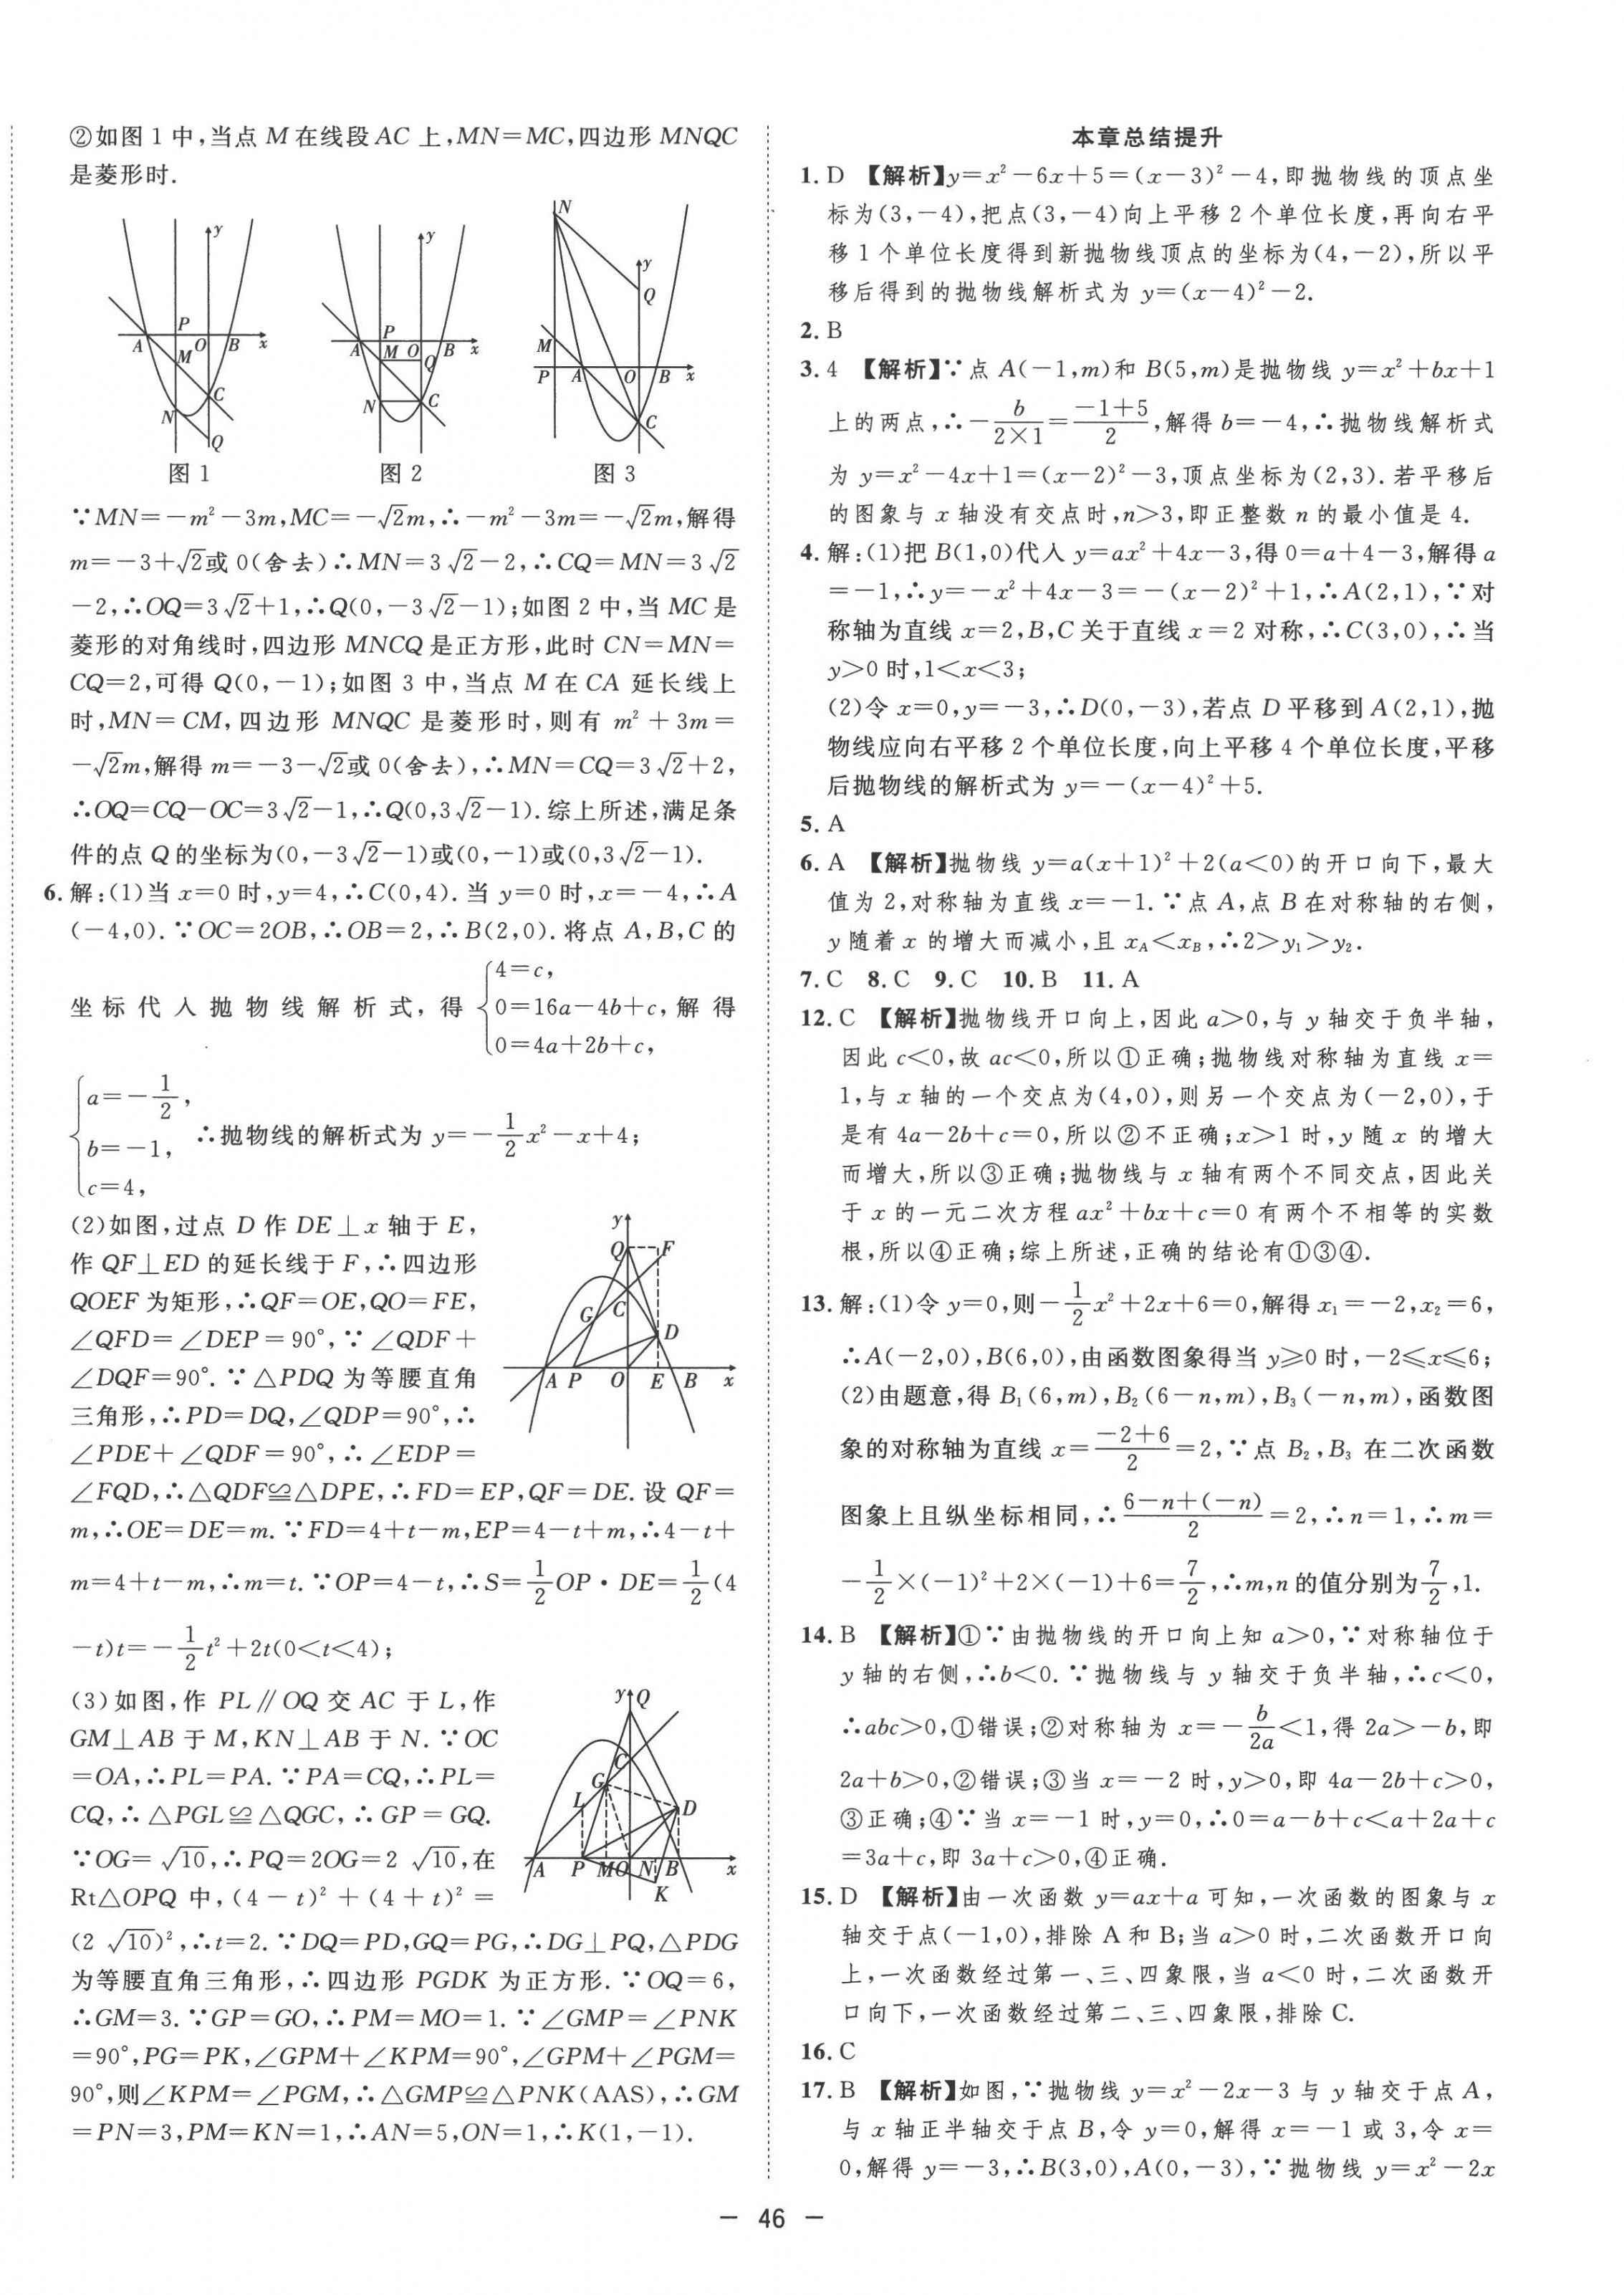 ②如图1中,当点M在线段AC上,MN=MC,四边形MNQC
是菱形时.
N
y
y
y
Q
P
P
A
M
O
B
x
A
M
O
Q
B
x
M
P
A
O
B
x
N
C
Q
N
C
C
图1
图2
图3
∵MN=-m²-3m,MC=-√2m,∴-m²-3m=-√2m,解得
m=-3+√2或0(舍去)∴MN=3√2-2,∴CQ=MN=3√2
-2,∴OQ=3√2+1,∴Q(0,-3√2-1);如图2中,当MC是
菱形的对角线时,四边形MNCQ是正方形,此时CN=MN=
CQ=2,可得Q(0,-1);如图3中,当点M在CA延长线上
时,MN=CM,四边形MNQC是菱形时,则有m²+3m=
-√2m,解得m=-3-√2或0(舍去),∴MN=CQ=3√2+2,
∴OQ=CQ-OC=3√2-1,∴Q(0,3√2-1).综上所述,满足条
件的点Q的坐标为(0,-3√2-1)或(0,-1)或(0,3√2-1).
6.解:(1)当x=0时,y=4,∴C(0,4).当y=0时,x=-4,∴A
(-4,0).∵OC=2OB,∴OB=2,∴B(2,0).将点A,B,C的
坐标代入抛物线解析式,得{4=c,
0=16a-4b+c,解得
0=4a+2b+c,
{a=-1/2,
b=-1, ∴抛物线的解析式为y=-1/2x²-x+4;
c=4,
(2)如图,过点D作DE⊥x轴于E,
作QF⊥ED的延长线于F,∴四边形
QOEF为矩形,∴QF=OE,QO=FE,
∠QFD=∠DEP=90°,∵∠QDF+
∠DQF=90°.∵△PDQ为等腰直角
三角形,∴PD=DQ,∠QDP=90°,∴
∠PDE+∠QDF=90°,∴∠EDP=
y
Q
F
G
C
D
A
P
O
E
B
x
∠FQD,∴△QDF≌△DPE,∴FD=EP,QF=DE.设QF=
m,∴OE=DE=m.∵FD=4+t-m,EP=4-t+m,∴4-t+
m=4+t-m,∴m=t.∵OP=4-t,∴S=1/2OP·DE=1/2(4
-t)t=-1/2t²+2t(0<t<4);
(3)如图,作PL∥OQ交AC于L,作
GM⊥AB于M,KN⊥AB于N.∵OC
=OA,∴PL=PA.∵PA=CQ,∴PL=
CQ,∴△PGL≌△QGC,∴GP=GQ.
∵OG=√10,∴PQ=2OG=2√10,在
Rt△OPQ中,(4-t)²+(4+t)²=
y
Q
C
G
L
D
A
P
M
O
N
B
x
K
(2√10)²,∴t=2.∵DQ=PD,GQ=PG,∴DG⊥PQ,△PDG
为等腰直角三角形,∴四边形PGDK为正方形.∵OQ=6,
∴GM=3.∵GP=GO,∴PM=MO=1.∵∠GMP=∠PNK
=90°,PG=PK,∠GPM+∠KPM=90°,∠GPM+∠PGM=
90°,则∠KPM=∠PGM,∴△GMP≌△PNK(AAS),∴GM
=PN=3,PM=KN=1,∴AN=5,ON=1,∴K(1,-1).
本章总结提升
1.D 【解析】y=x²-6x+5=(x-3)²-4,即抛物线的顶点坐
标为(3,-4),把点(3,-4)向上平移2个单位长度,再向右平
移1个单位长度得到新抛物线顶点的坐标为(4,-2),所以平
移后得到的抛物线解析式为y=(x-4)²-2.
2.B
3.4 【解析】∵点A(-1,m)和B(5,m)是抛物线y=x²+bx+1
上的两点,∴-b/(2×1)=(-1+5)/2,解得b=-4,∴抛物线解析式
为y=x²-4x+1=(x-2)²-3,顶点坐标为(2,3).若平移后
的图象与x轴没有交点时,n>3,即正整数n的最小值是4.
4.解:(1)把B(1,0)代入y=ax²+4x-3,得0=a+4-3,解得a
=-1,∴y=-x²+4x-3=-(x-2)²+1,∴A(2,1),∵对
称轴为直线x=2,B,C关于直线x=2对称,∴C(3,0),∴当
y>0时,1<x<3;
(2)令x=0,y=-3,∴D(0,-3),若点D平移到A(2,1),抛
物线应向右平移2个单位长度,向上平移4个单位长度,平移
后抛物线的解析式为y=-(x-4)²+5.
5.A
6.A 【解析】抛物线y=a(x+1)²+2(a<0)的开口向下,最大
值为2,对称轴为直线x=-1.∵点A,点B在对称轴的右侧,
y随着x的增大而减小,且x_A<x_B,∴2>y₁>y₂.
7.C 8.C 9.C 10.B 11.A
12.C 【解析】抛物线开口向上,因此a>0,与y轴交于负半轴,
因此c<0,故ac<0,所以①正确;抛物线对称轴为直线x=
1,与x轴的一个交点为(4,0),则另一个交点为(-2,0),于
是有4a-2b+c=0,所以②不正确;x>1时,y随x的增大
而增大,所以③正确;抛物线与x轴有两个不同交点,因此关
于x的一元二次方程ax²+bx+c=0有两个不相等的实数
根,所以④正确;综上所述,正确的结论有①③④.
13.解:(1)令y=0,则-1/2x²+2x+6=0,解得x₁=-2,x₂=6,
∴A(-2,0),B(6,0),由函数图象得当y≥0时,-2≤x≤6;
(2)由题意,得B₁(6,m),B₂(6-n,m),B₃(-n,m),函数图
象的对称轴为直线x=(-2+6)/2=2,∵点B₂,B₃在二次函数
图象上且纵坐标相同,∴(6-n+(-n))/2=2,∴n=1,∴m=
-1/2×(-1)²+2×(-1)+6=7/2,∴m,n的值分别为7/2,1.
14.B 【解析】①∵由抛物线的开口向上知a>0,∵对称轴位于
y轴的右侧,∴b<0.∵抛物线与y轴交于负半轴,∴c<0,
∴abc>0,①错误;②对称轴为x=-b/2a<1,得2a>-b,即
2a+b>0,②错误;③当x=-2时,y>0,即4a-2b+c>0,
③正确;④∵当x=-1时,y=0,∴0=a-b+c<a+2a+c
=3a+c,即3a+c>0,④正确.
15.D 【解析】由一次函数y=ax+a可知,一次函数的图象与x
轴交于点(-1,0),排除A和B;当a>0时,二次函数开口向
上,一次函数经过第一、三、四象限,当a<0时,二次函数开
口向下,一次函数经过第二、三、四象限,排除C.
16.C
17.B 【解析】如图,∵抛物线y=x²-2x-3与y轴交于点A,
与x轴正半轴交于点B,令y=0,解得x=-1或3,令x=
0,解得y=-3,∴B(3,0),A(0,-3),∵抛物线y=x²-2x
- 46 -